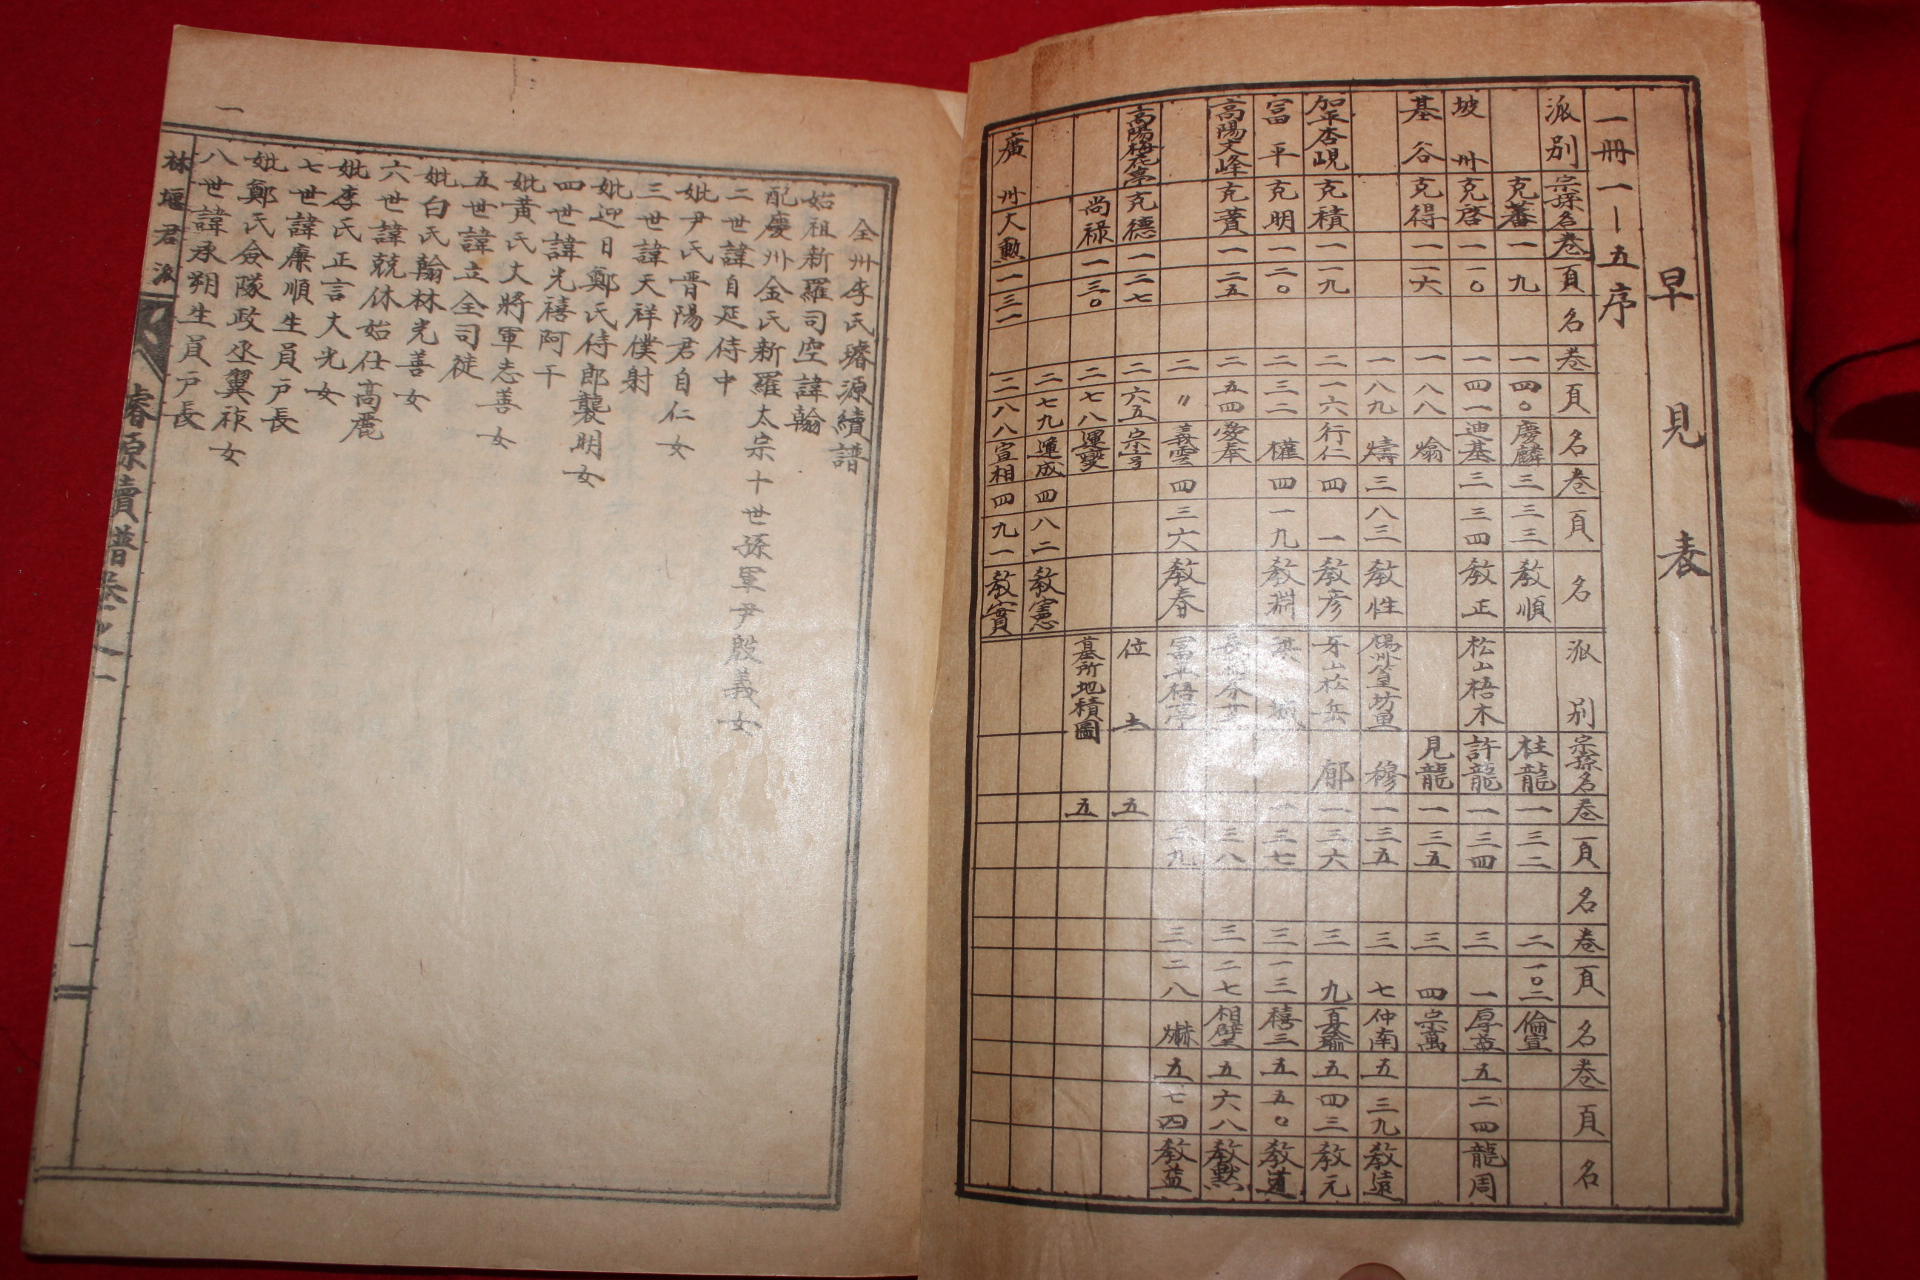 早見表
一冊一一五序
派別 宗孫名 卷 頁 名 卷 頁 名 卷 頁 名
克蕃 一 九 一 四〇 慶麟 三 三三 敎順
坡州 克啓 一 一〇 一 四一 迪基 三 三四 敎正
基谷 克得 一 一六 一 八八 爚
一 八九 燾 三 八三 敎性
加平杏峴 克積 一 一九 二 一六 行仁 四 一 敎彦
富平 克明 一 二〇 二 三二 權 四 一九 敎淵
高陽文峰 克蕡 一 二五 二 五四 愛奉
二 〃 義雲 四 三六 敎春
高陽梅花亭 克德 一 二七 二 六五
尚祿 一 三〇 二 七八 運燮
二 七九 運成 四 八二 敎憲
廣州 大勲 一 三一 二 八八 宣相 四 九一 敎實
派別 宗孫名 卷 頁 名 卷 頁 名 卷 頁 名
柱龍 一 三二 二 一〇二 倫宣
松山梧木 許龍 一 三四 三 一 厚益 五 二四 龍周
見龍 一 三五 三 四 宗萬
穆 一 三五 三 七 仲南 五 三九 敎遠
牙山松岳 廓 一 三六 三 九 夏瑜 五 四三 敎元
一 三七 三 一三 禧三 五 五〇 敎道
三八 三 二七 相璧 五 六八 敎默
富平梧亭 三九 三 二八 爀 五 七四 敎益
位土 五
墓所地積圖 五
全州李氏璿源續譜
始祖新羅司空諱翰
配慶州金氏新羅太宗十世孫軍尹殷義女
二世諱自延侍中
妣尹氏晋陽君自仁女
三世諱天祥僕射
妣迎日鄭氏侍郎襲明女
四世諱光禧阿干
妣黃氏大將軍志善女
五世諱立全司徒
妣白氏翰林光善女
六世諱兢休始仕高麗
妣李氏正言大光女
七世諱廉順生員戶長
妣鄭氏僉隊政丞翼祚女
八世諱承朔生員戶長
林堰君派
璿源續譜卷之一
一
一